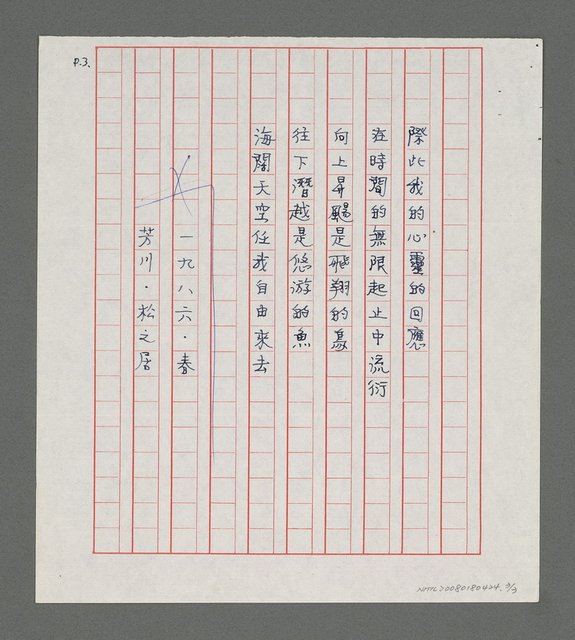 P.3.
際此我的心靈的回應
在時間的無限起止中流衍
向上昇颺是飛翔的鳥
往下潛越是悠游的魚
海闊天空任我自由來去
一九八六·春
芳川·松之居
NMTL20080180424. 3/3